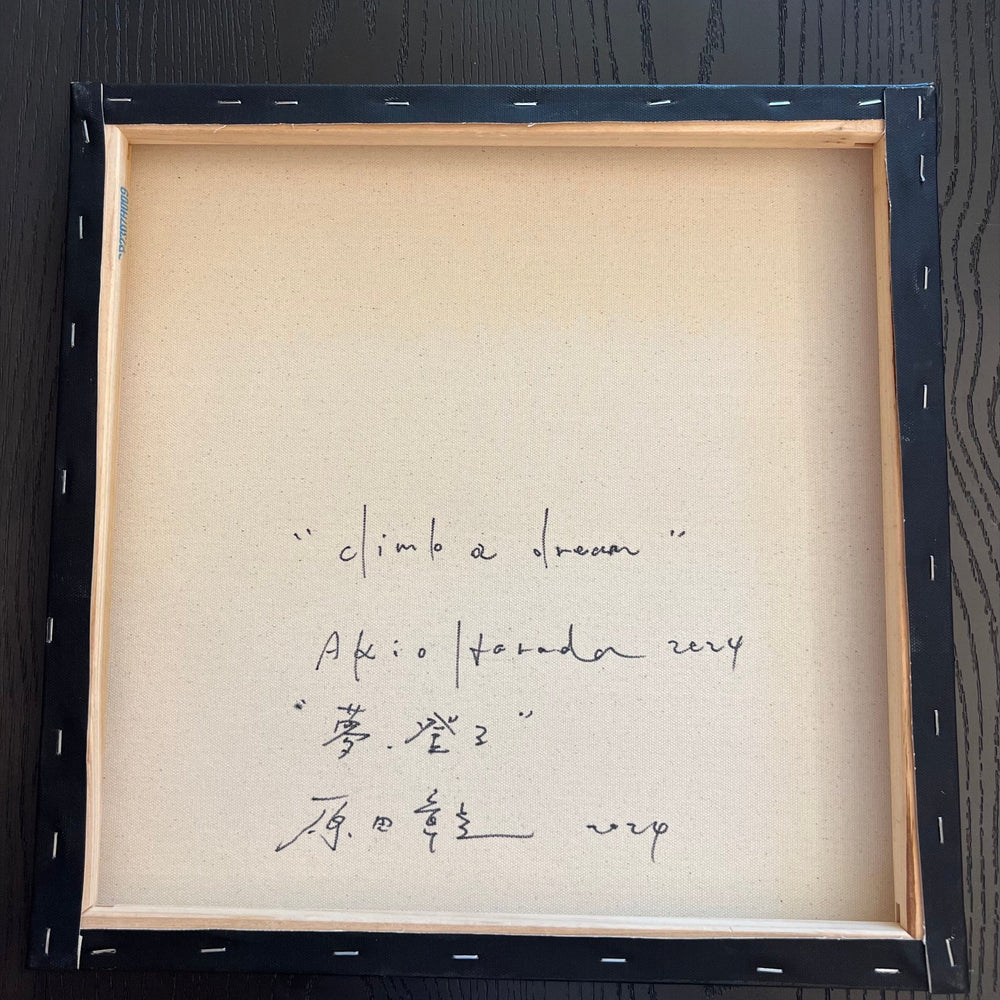 "climb a dream"
Akio Harada 2024
"夢、登る"
原田章生 2024